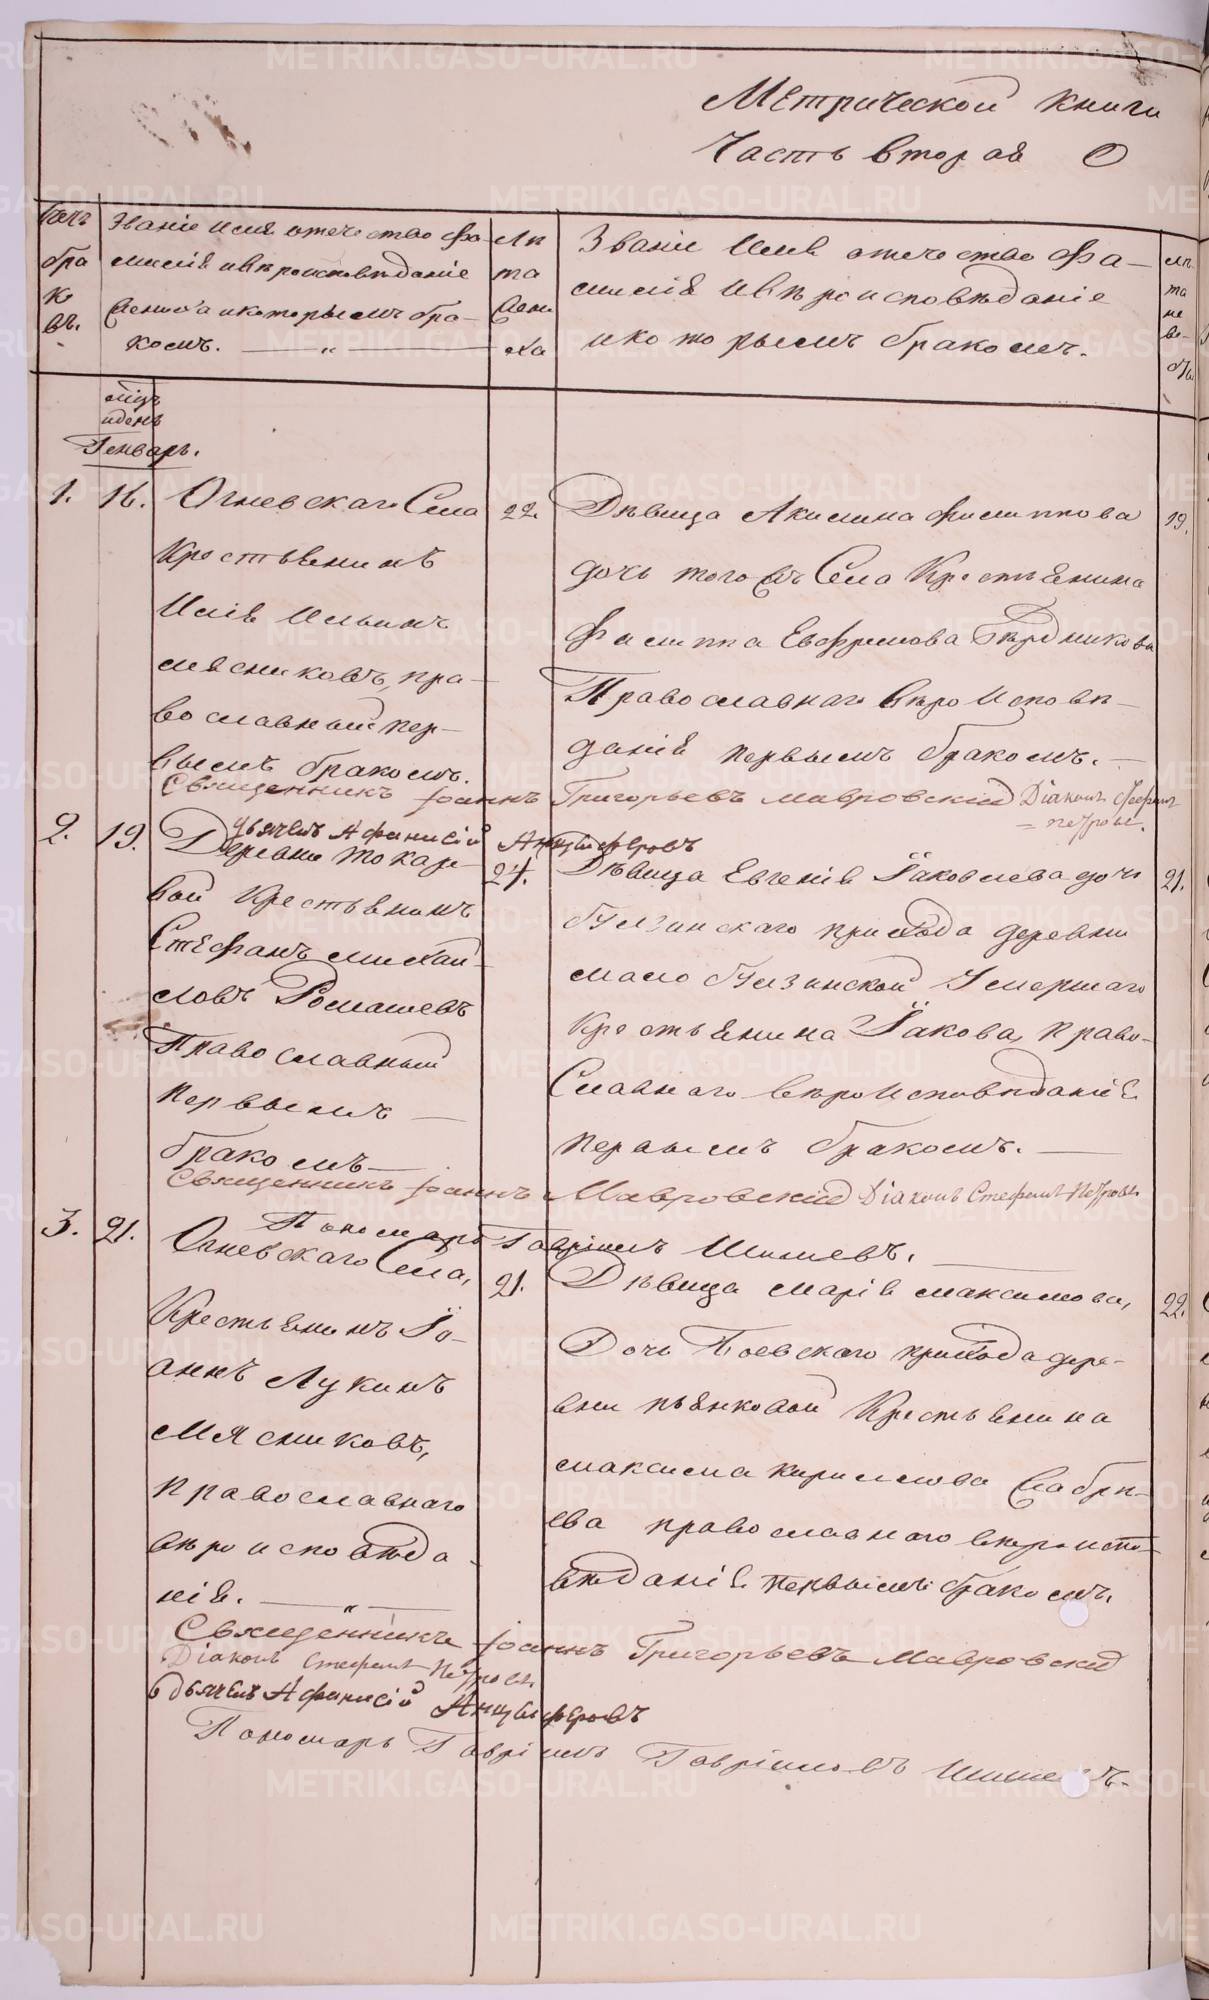 Метрической книги
Часть вторая О
Счетъ браковъ.
Званіе имя отечество фамилія и вѣроисповѣданіе жениха и которымъ бракомъ.
Лѣта жениха
Званіе Имя отечество фа-
милія и вѣроисповѣданіе
и которымъ бракомъ.
лѣта невѣсты
мцъ
и день
Генварь.
1. 16. Огневскаго Села 22.
Крестьянинъ
Илія Ильинъ
мясниковъ, пра-
вославный пер-
вымъ бракомъ.
Дѣвица Акилина филиппова 19.
дочь того жъ Села Крестьянина
Филиппа Евфимова
Православнаго вѣроисповѣ-
данія первымъ бракомъ.
Священникъ Іоаннъ Григорьевъ Мавровский Діаконъ Стефанъ
Петровъ.
дьячекъ Афанасій Анциферовъ
2. 19. Деревни Токаре- 24.
вой Крестьянинъ
Стефанъ михай-
ловъ Ромашевъ
Православный
первымъ
бракомъ
Дѣвица Евгенія Іаковлева дочь 21.
булзинскаго прихода деревни
мало булзинской Умершаго
Крестьянина Іакова, право-
Славнаго вѣроисповѣданія
первымъ бракомъ.
Священникъ Іоаннъ Мавровский Діаконъ Стефанъ Петровъ
Пономарь Гавріилъ Шишевъ.
3. 21. Огневскаго Села, 21.
Крестьянинъ Іо-
аннъ Лукинъ
Мясниковъ,
православнаго
вѣроисповѣда-
нія.
Дѣвица марія максимова, 22.
Дочь Боевскаго прихода дере-
вни пьянковой Крестьянина
максима кирилова
православнаго вѣроиспо-
вѣданія первымъ бракомъ.
Священникъ Іоаннъ Григорьевъ Мавровский
Діаконъ Стефанъ Петровъ
дьячекъ Афанасій Анциферовъ
Пономарь Гавріилъ Гавріиловъ Шишевъ.
METRIKI.GASO-URAL.RU